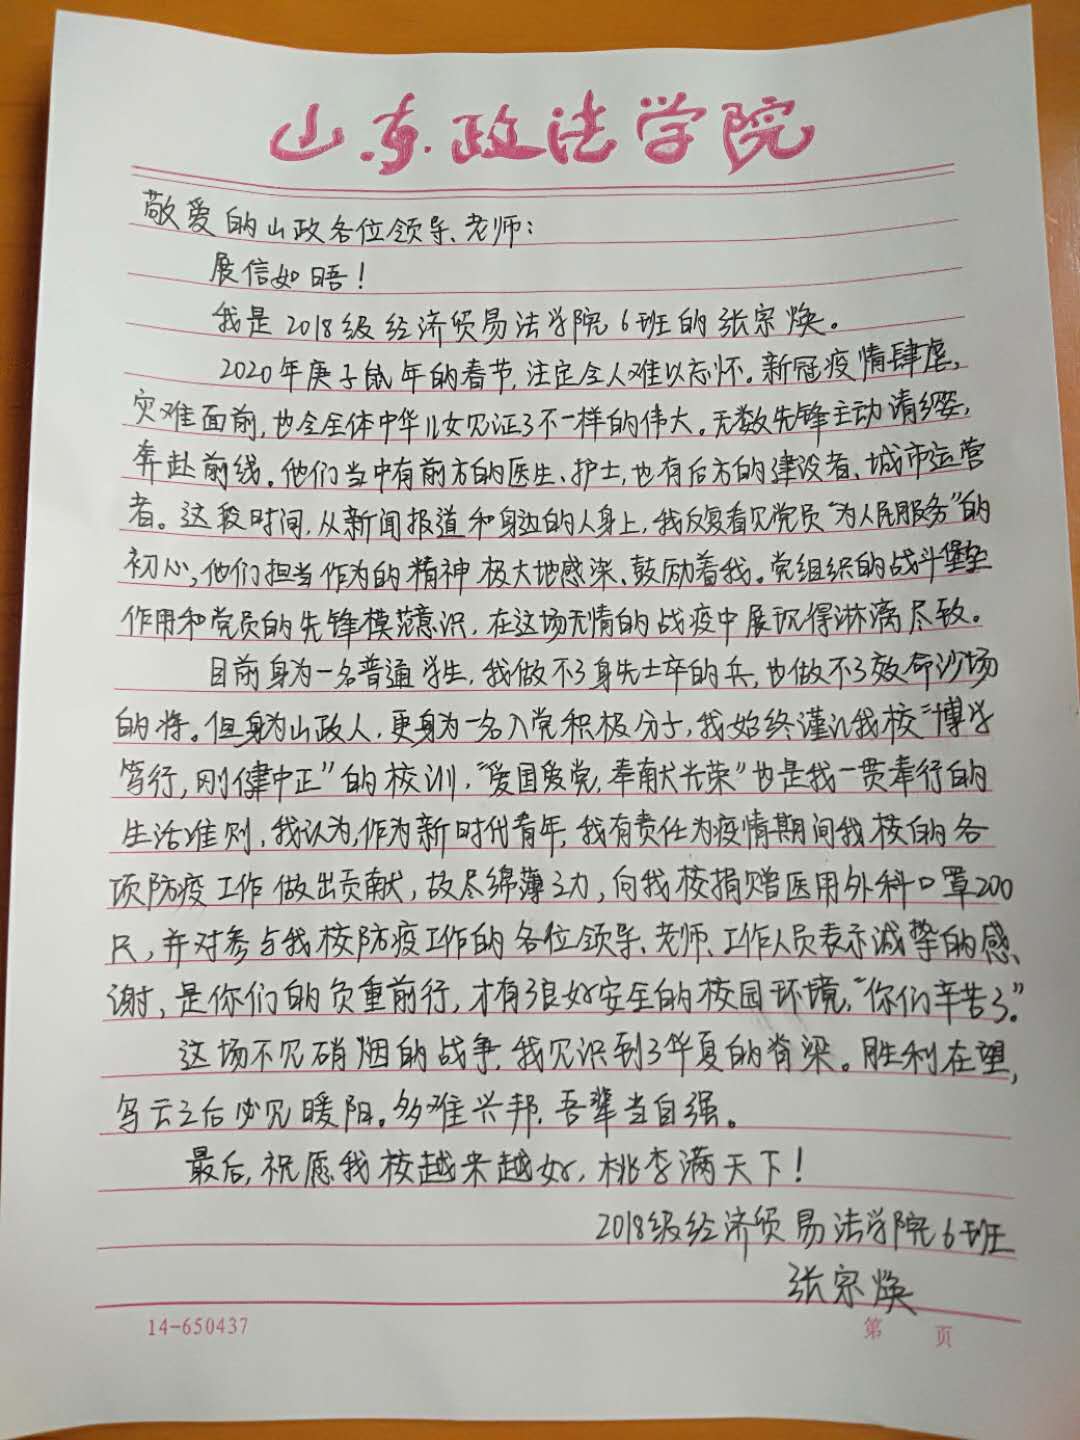 山东政法学院
敬爱的山政各位领导、老师：
展信如晤！
我是2018级经济贸易法学院6班的张宗焕。
2020年庚子鼠年的春节，注定令人难以忘怀。新冠疫情肆虐，
灾难面前，也令全体中华儿女见证了不一样的伟大。无数先锋主动请缨，
奔赴前线。他们当中有前方的医生、护士，也有后方的建设者、城市运营
者。这段时间，从新闻报道和身边的人身上，我反复看见党员“为人民服务”的
初心，他们担当作为的精神极大地感染、鼓励着我。党组织的战斗堡垒
作用和党员的先锋模范意识，在这场无情的战疫中展现得淋漓尽致。
目前身为一名普通学生，我做不了身先士卒的兵，也做不了效命沙场
的将。但身为山政人，更身为一名入党积极分子，我始终谨记我校“博学
笃行，刚健中正”的校训，“爱国爱党，奉献光荣”也是我一贯奉行的
生活准则，我认为，作为新时代青年，我有责任为疫情期间我校的各
项防疫工作做出贡献，故尽绵薄之力，向我校捐赠医用外科口罩200
只，并对参与我校防疫工作的各位领导、老师、工作人员表示诚挚的感
谢，是你们的负重前行，才有了良好安全的校园环境，“你们辛苦了”。
这场不见硝烟的战争，我见识到了华夏的脊梁。胜利在望，
乌云之后必见暖阳。多难兴邦，吾辈当自强。
最后，祝愿我校越来越好，桃李满天下！
2018级经济贸易法学院6班
张宗焕
14-650437
第 页